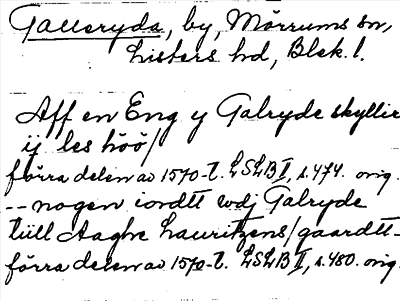 Galleryda, by, Mörrums sn,
Listers hd, Blek. l.
Aff en Eng y Galryde skyllir
ij les höö/
förra delen av 1570-t. LSLB I, s. 474. orig.
-- nogen iordtt wdj Galryde
tiill Aaghe Lauritzens/gaardtt-
förra delen av 1570-t. LSLB I, s. 480. orig.